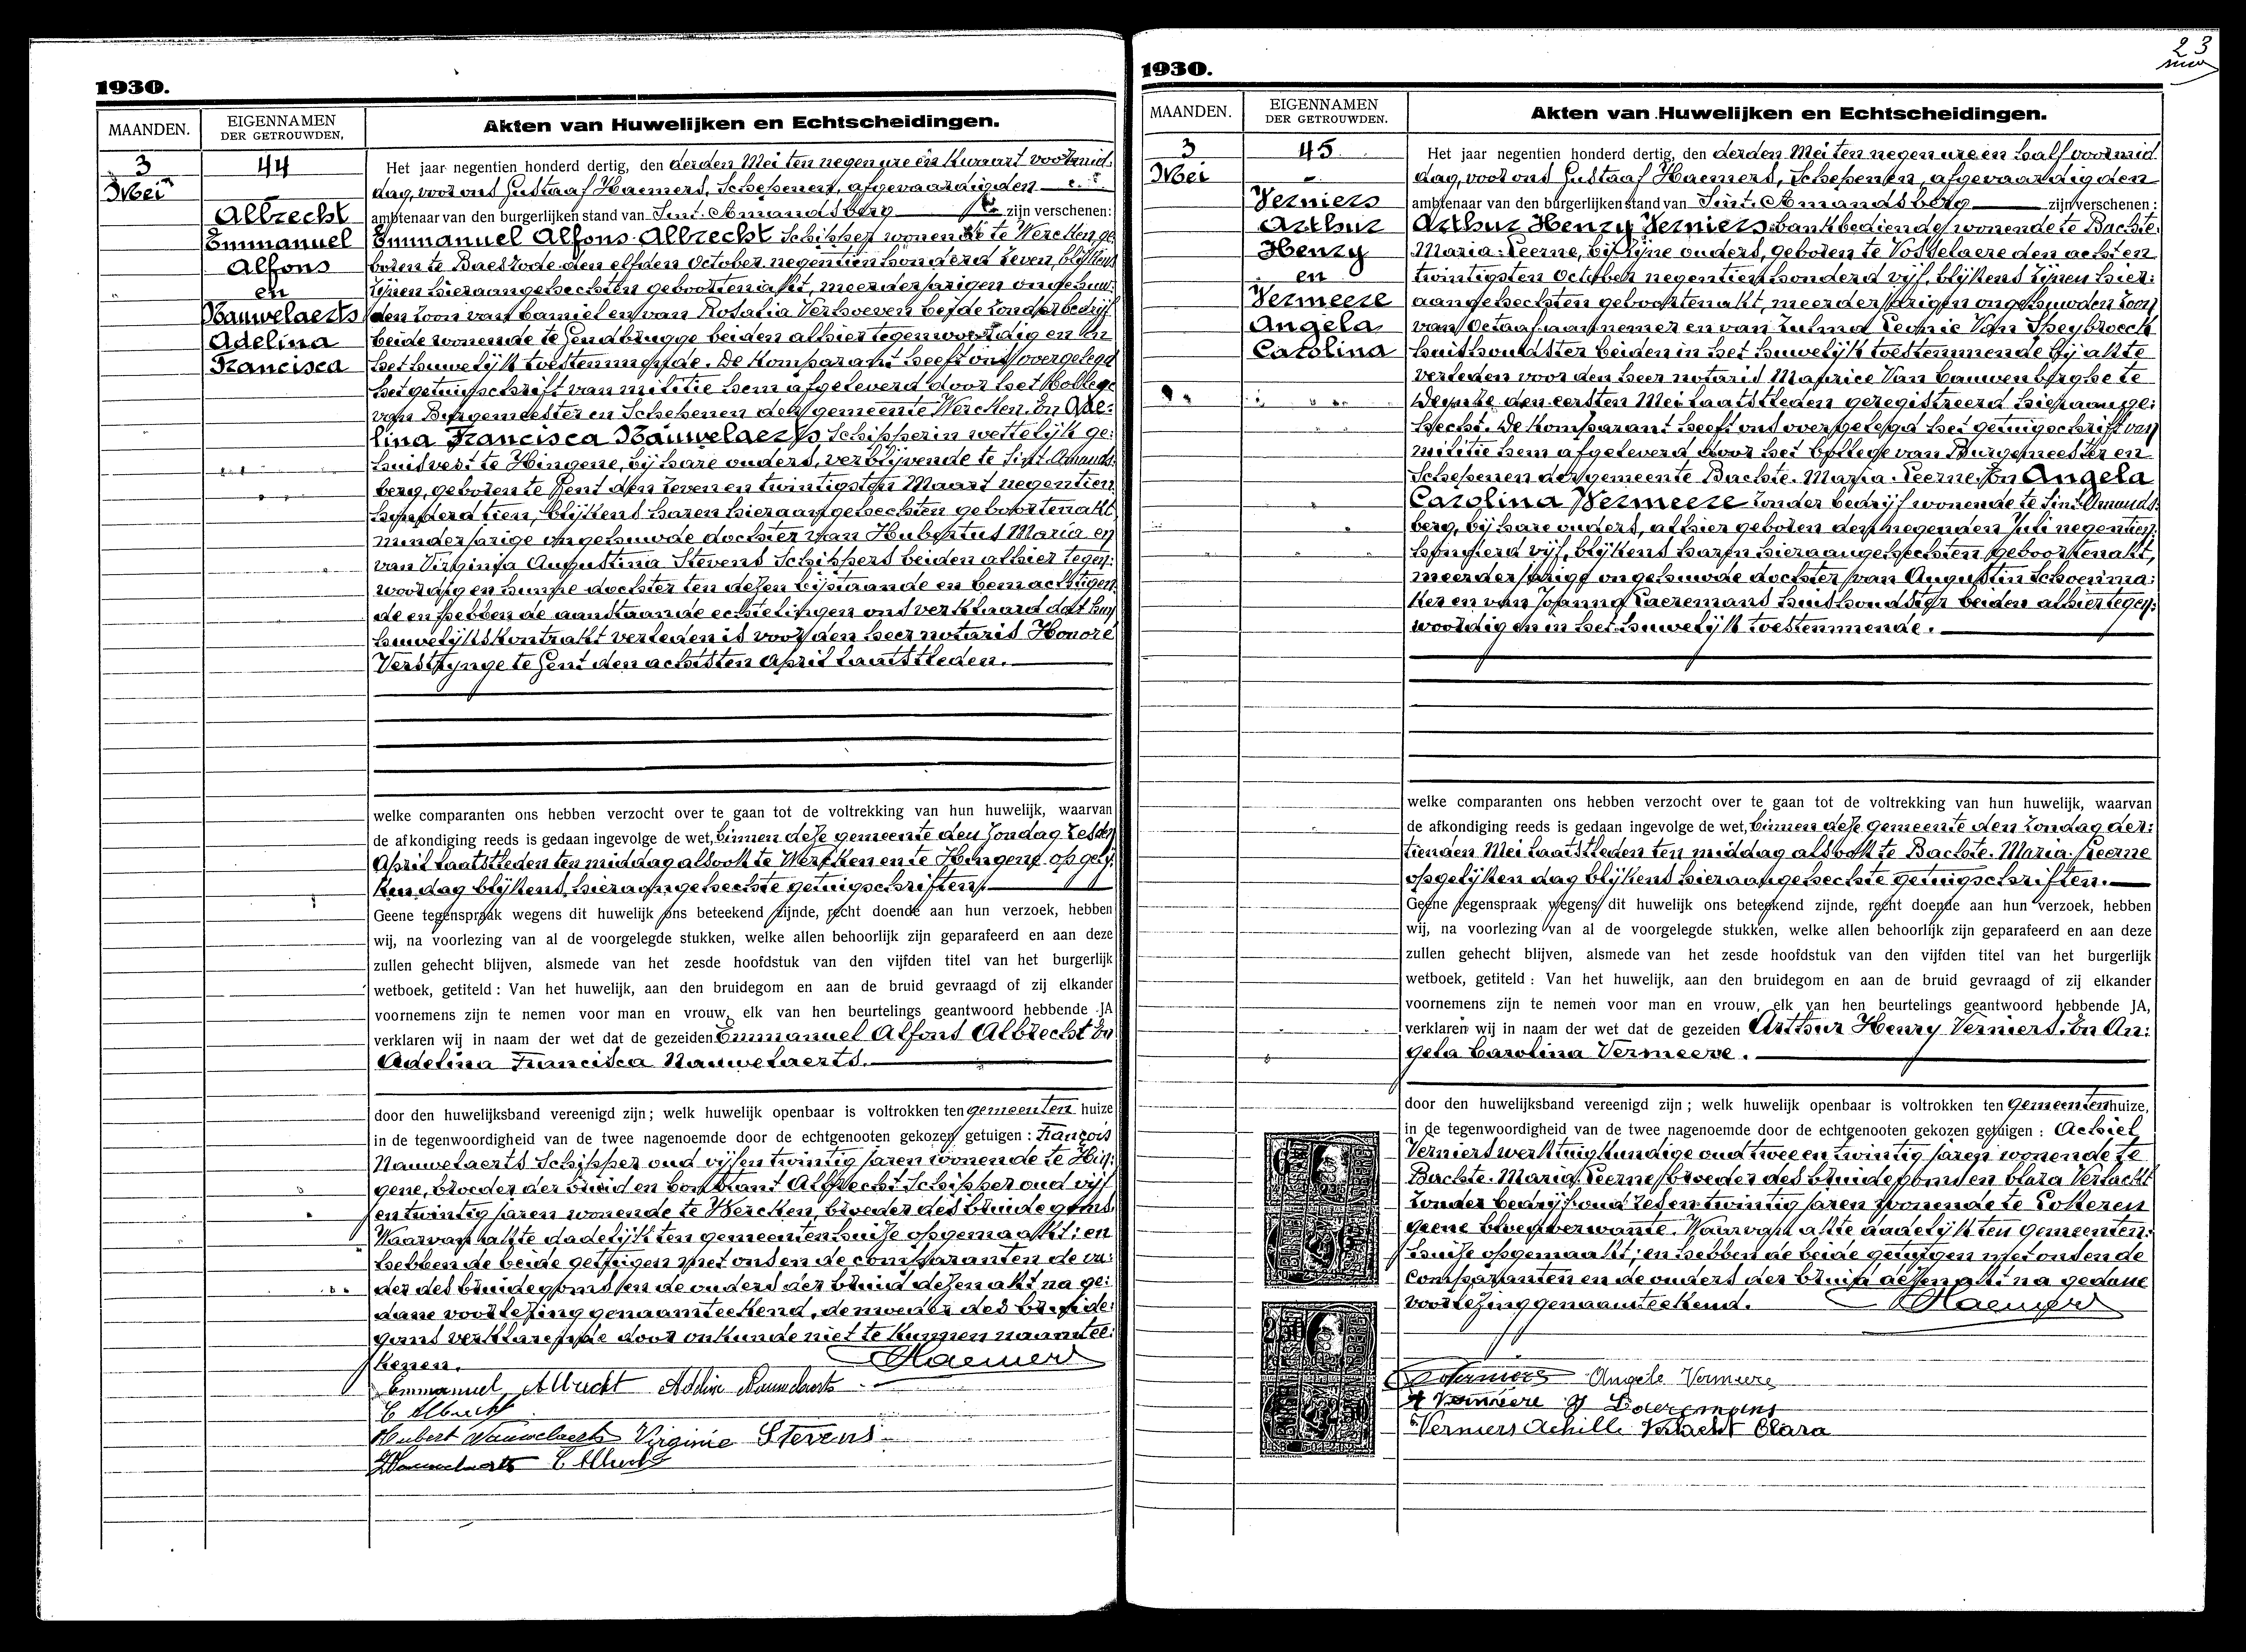 1930.
MAANDEN.
EIGENNAMEN
DER GETROUWDEN.
Akten van Huwelijken en Echtscheidingen.
3
Mei
44
Albrecht
Emmanuel
Alfons
en
Nauwelaerts
Adelina
Francisca
Het jaar negentien honderd dertig, den derden Mei ten negen ure een kwaart voormid:
dag, voor ons Gustaaf Haemers, Schepenen, afgevaardigden
ambtenaar van den burgerlijken stand van Sint. Amandsberg zijn verschenen:
Emmanuel Alfons Albrecht Schipper wonende te Wercken ge:
boren te Baesrode den elfden October negentien honderd zeven, blijkens
zijnen hieraangehechten geboortenakt, meerderjarigen ongehuw:
den zoon van Daniel en van Rosalia Verhoeven beide zonder bedrijf
beide wonende te Gendbrugge beiden alhier tegenwoordig en in
het huwelijk toestemmende. De Komparant heeft ons overgelegd
het getuigschrift van militie hem afgeleverd door het Kollege
van Burgemeester en Schepenen der gemeente Wercken. En Ade:
lina Francisca Nauwelaerts Schipperin wettelijk ge:
huisvest te Hingene, bij hare ouders, verblijvende te Sint. Amands:
berg, geboren te Gent den zeven en twintigsten Maart negentien
honderd tien, blijkens haren hieraangehechten geboortenakt
minderjarige ongehuwde dochter van Hubertus Maria en
van Virginia Augustina Stevens Schippers beiden alhier tegen:
woordig en hunne dochter ten dezen bijstaande en bemachtigen:
de en hebben de aanstaande echtelingen ons verklaard dat hun
huwelijkskontrakt verleden is voor den heer notaris Honoré
Verstrynge te Gent den achtsten April laatstleden.
welke comparanten ons hebben verzocht over te gaan tot de voltrekking van hun huwelijk, waarvan
de afkondiging reeds is gedaan ingevolge de wet, binnen deze gemeente den Zondag zesden
April laatstleden ten middag alsook te Wercken en te Hingene op gelij:
ken dag blijkens hieraangehechte getuigschriften.
Geene tegenspraak wegens dit huwelijk ons beteekend zijnde, recht doende aan hun verzoek, hebben
wij, na voorlezing van al de voorgelegde stukken, welke allen behoorlijk zijn geparafeerd en aan deze
zullen gehecht blijven, alsmede van het zesde hoofdstuk van den vijfden titel van het burgerlijk
wetboek, getiteld : Van het huwelijk, aan den bruidegom en aan de bruid gevraagd of zij elkander
voornemens zijn te nemen voor man en vrouw, elk van hen beurtelings geantwoord hebbende JA
verklaren wij in naam der wet dat de gezeiden Emmanuel Alfons Albrecht En
Adelina Francisca Nauwelaerts.
door den huwelijksband vereenigd zijn; welk huwelijk openbaar is voltrokken ten gemeenten huize
in de tegenwoordigheid van de twee nagenoemde door de echtgenooten gekozen getuigen : François
Nauwelaerts Schipper oud vijf en twintig jaren wonende te Hin:
gene, broeder der bruid en Constant Albrecht Schipper oud vijf
en twintig jaren wonende te Wercken, broeder des bruidegoms
Waarvan akte dadelijk ten gemeentenhuize opgemaakt; en
hebben de beide getuigen met ons en de comparanten de va:
der des bruidegoms en de ouders der bruid dezen akt na ge:
dane voorlezing genaamteekend, de moeder des bruide:
goms verklarende door onkunde niet te kunnen naamtee:
kenen. Haemers
Emmanuel Albrecht Adeline Nauwelaerts
Hubert Nauwelaerts Virginie Stevens
Nauwelaerts C Albrecht
23
1930.
MAANDEN.
EIGENNAMEN
DER GETROUWDEN.
Akten van Huwelijken en Echtscheidingen.
3
Mei
45
Verniers
Arthur
Henry
en
Vermeere
Angela
Carolina
Het jaar negentien honderd dertig, den derden Mei ten negen ure en half voormid:
dag, voor ons Gustaaf Haemers, Schepenen, afgevaardigden
ambtenaar van den burgerlijken stand van Sint. Amandsberg zijn verschenen :
Arthur Henry Verniers bankbediende wonende te Bachte:
Maria-Leerne, bij zijne ouders, geboren te Vosselaere den acht en
twintigsten October negentien honderd vijf, blijkens zijnen hier:
aangehechten geboortenakt, meerderjarigen ongehuwden zoon
van Octaaf aannemer en van Zulma Leonie Van Speybroeck
huishoudster beiden in het huwelijk toestemmende bij akte
verleden voor den heer notaris Maurice Van Cauwenberghe te
Deynze den eersten Mei laatstleden geregistreerd hieraange:
hecht. De Komparant heeft ons overgelegd het getuigschrift van
militie hem afgeleverd door het Kollege van Burgemeester en
Schepenen der gemeente Bachte. Maria. Leerne. En Angela
Carolina Vermeere zonder bedrijf wonende te Sint. Amands:
berg, bij hare ouders, alhier geboren den negenden Juli negentien
honderd vijf, blijkens haren hieraangehechten geboortenakt,
meerderjarige ongehuwde dochter van Augustin Schoenma:
ker en van Joanna Laeremans huishoudster beiden alhier tegen:
woordig en in het huwelijk toestemmende.
welke comparanten ons hebben verzocht over te gaan tot de voltrekking van hun huwelijk, waarvan
de afkondiging reeds is gedaan ingevolge de wet, binnen deze gemeente den Zondag der:
tienden Mei laatstleden ten middag alsook te Bachte. Maria. Leerne
op gelijken dag blijkens hieraangehechte getuigschriften.
Geene tegenspraak wegens dit huwelijk ons beteekend zijnde, recht doende aan hun verzoek, hebben
wij, na voorlezing van al de voorgelegde stukken, welke allen behoorlijk zijn geparafeerd en aan deze
zullen gehecht blijven, alsmede van het zesde hoofdstuk van den vijfden titel van het burgerlijk
wetboek, getiteld : Van het huwelijk, aan den bruidegom en aan de bruid gevraagd of zij elkander
voornemens zijn te nemen voor man en vrouw, elk van hen beurtelings geantwoord hebbende JA,
verklaren wij in naam der wet dat de gezeiden Arthur Henry Verniers. En An:
gela Carolina Vermeere.
door den huwelijksband vereenigd zijn; welk huwelijk openbaar is voltrokken ten Gemeentenhuize,
in de tegenwoordigheid van de twee nagenoemde door de echtgenooten gekozen getuigen : Achiel
Verniers werktuigkundige oud twee en twintig jaren wonende te
Bachte. Maria. Leerne broeder des bruidegoms en Clara Verlackt
zonder bedrijf oud zes en twintig jaren wonende te Lokeren
geene bloedverwante. Waarvan akte dadelijk ten gemeenten:
huize opgemaakt; en hebben de beide getuigen met ons en de
comparanten en de ouders der bruid dezen akt na gedane
voorlezing genaamteekend. Haemers
Verniers Angele Vermeere
A Vermeere J Laeremans
Verniers Achille Verlackt Clara